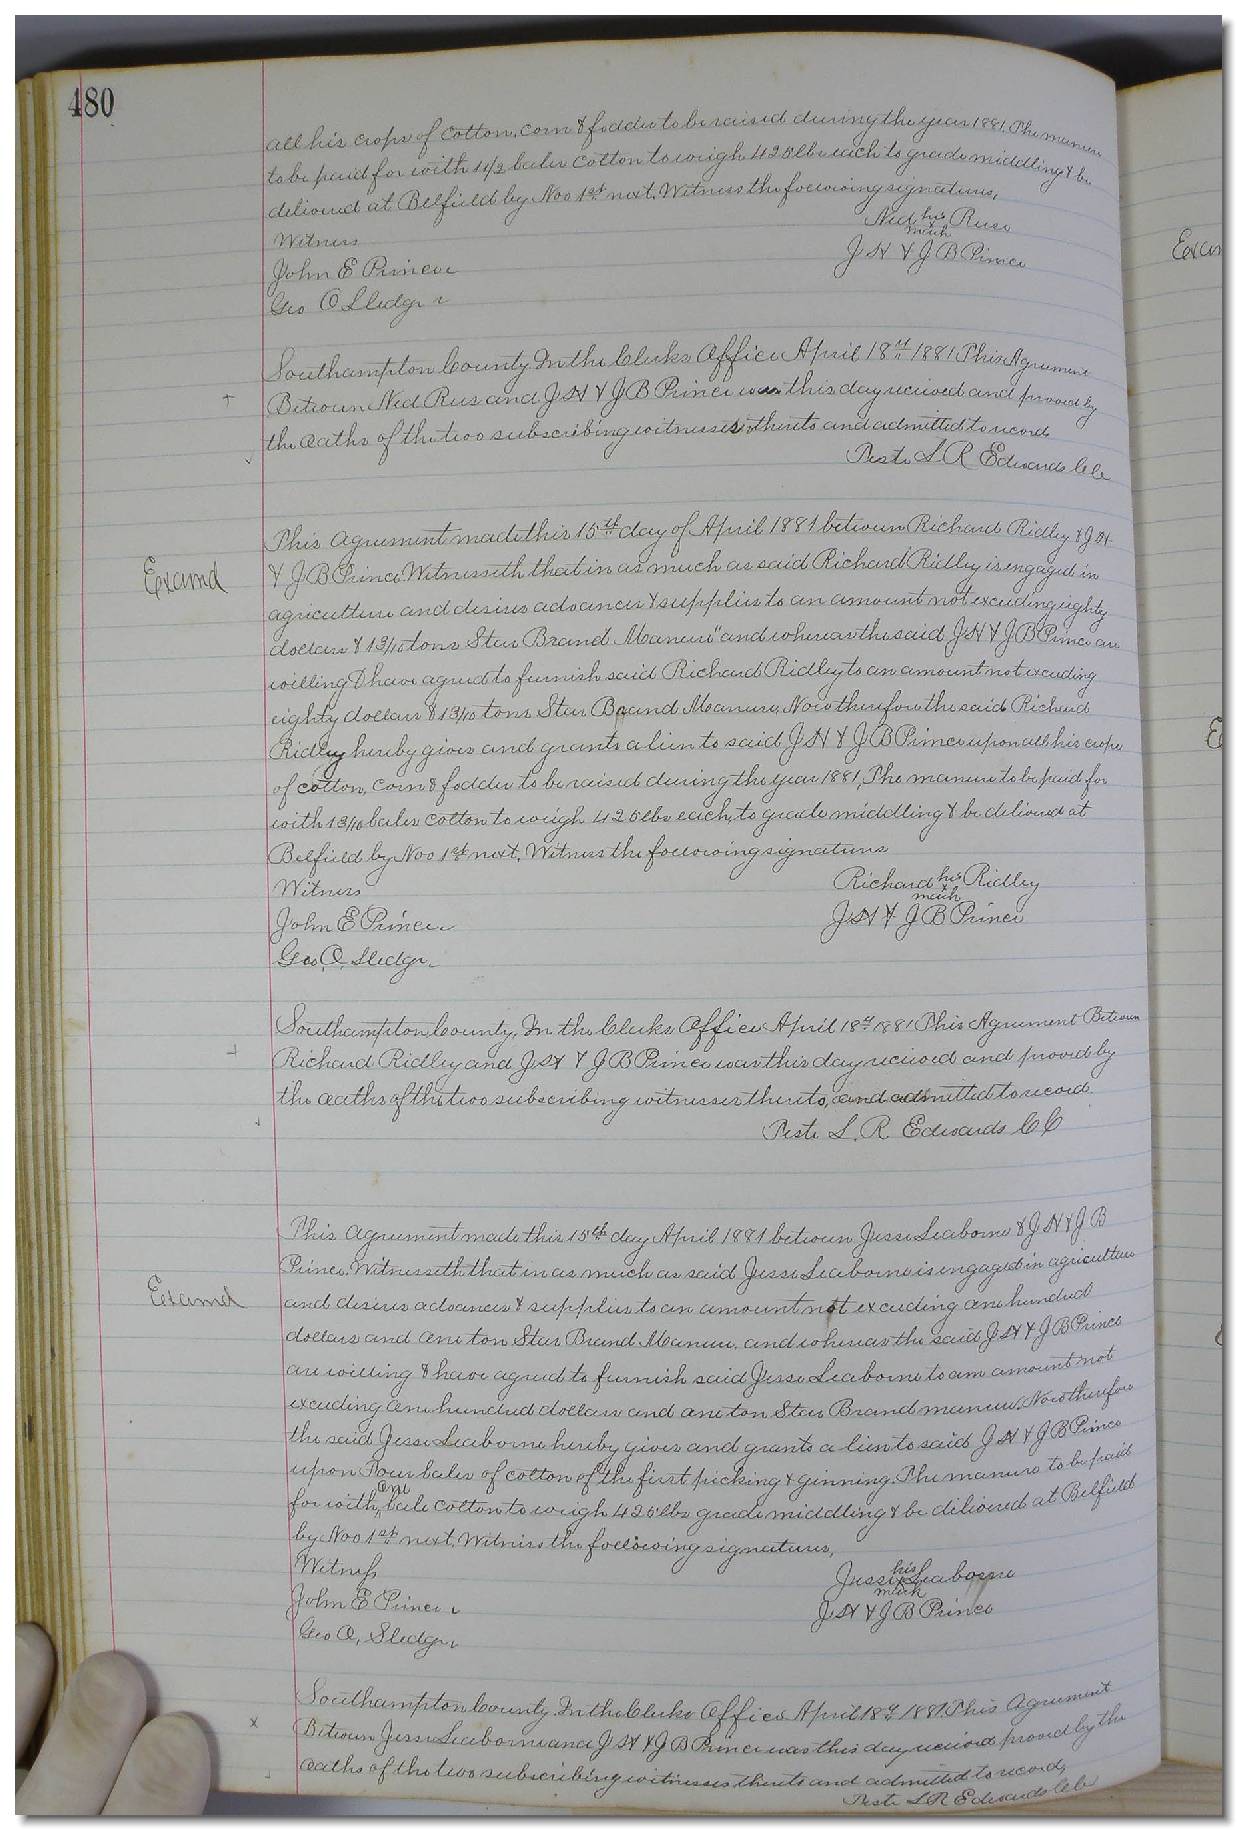 480
all his crops of cotton, corn & fodder to be raised during the year 1881, The manure
to be paid for with 1 1/2 bales cotton to weigh 425 lbs each to grade middling & be
delivered at Belfield by Nov 1st next. Witness the following signatures,
Witness
Ned his mark
John E Prince
J H & J B Prince
Geo O Sledge
Southampton County In the Clerks Office April 18th 1881 This Agreement
Between Ned and J H & J B Prince was this day received and proved by
the oaths of the two subscribing witnesses thereto and admitted to record
Teste L R Edwards CC
This agreement made this 15th day of April 1881 between Richard Ridley & J H
Examd
& J B Prince Witnesseth that in as much as said Richard Ridley is engaged in
agriculture and desires advances & supplies to an amount not exceeding eighty
dollars & 1 3/10 tons Star Brand Manure" and whereas the said J H & J B Prince are
willing & have agreed to furnish said Richard Ridley to an amount not exceeding
eighty dollars & 1 3/10 tons Star Brand Manure, Now therefore the said Richard
Ridley hereby gives and grants a lien to said J H & J B Prince upon all his crops
of cotton, corn & fodder to be raised during the year 1881, The manure to be paid for
with 1 3/10 bales cotton to weigh 425 lbs each, to grade middling & be delivered at
Belfield by Nov 1st next, Witness the following signatures
Witness
Richard his mark Ridley
John E Prince
J H & J B Prince
Geo, O, Sledge
Southampton County, In the Clerks Office April 18th 1881 This Agreement Between
Richard Ridley and J H & J B Prince was this day received and proved by
the oaths of the two subscribing witnesses thereto, and admitted to record
Teste L. R. Edwards C C
This agreement made this 15th day April 1881 between Jesse Seaborne & J H & J B
Prince. Witnesseth that in as much as said Jesse Seaborne is engaged in agriculture
Examd
and desires advances & supplies to an amount not exceeding one hundred
dollars and one ton Star Brand Manure, and whereas the said J H & J B Prince
are willing & have agreed to furnish said Jesse Seaborne to am amount not
exceeding one hundred dollars and one ton Star Brand manure, Now therefore
the said Jesse Seaborne hereby gives and grants a lien to said J H & J B Prince
upon Four bales of cotton of the first picking & ginning. The manure to be paid
for with one bale cotton to weigh 425 lbs grade middling & be delivered at Belfield
by Nov 1st next, Witness the following signatures,
Witness
Jesse his mark Seaborne
John E Prince
J H & J B Prince
Geo O, Sledge
Southampton County In the Clerks Office April 18th 1881. This Agreement
Between Jesse Seaborne and J H & J B Prince was this day received proved by the
oaths of the two subscribing witnesses thereto and admitted to record,
Teste L R Edwards CC